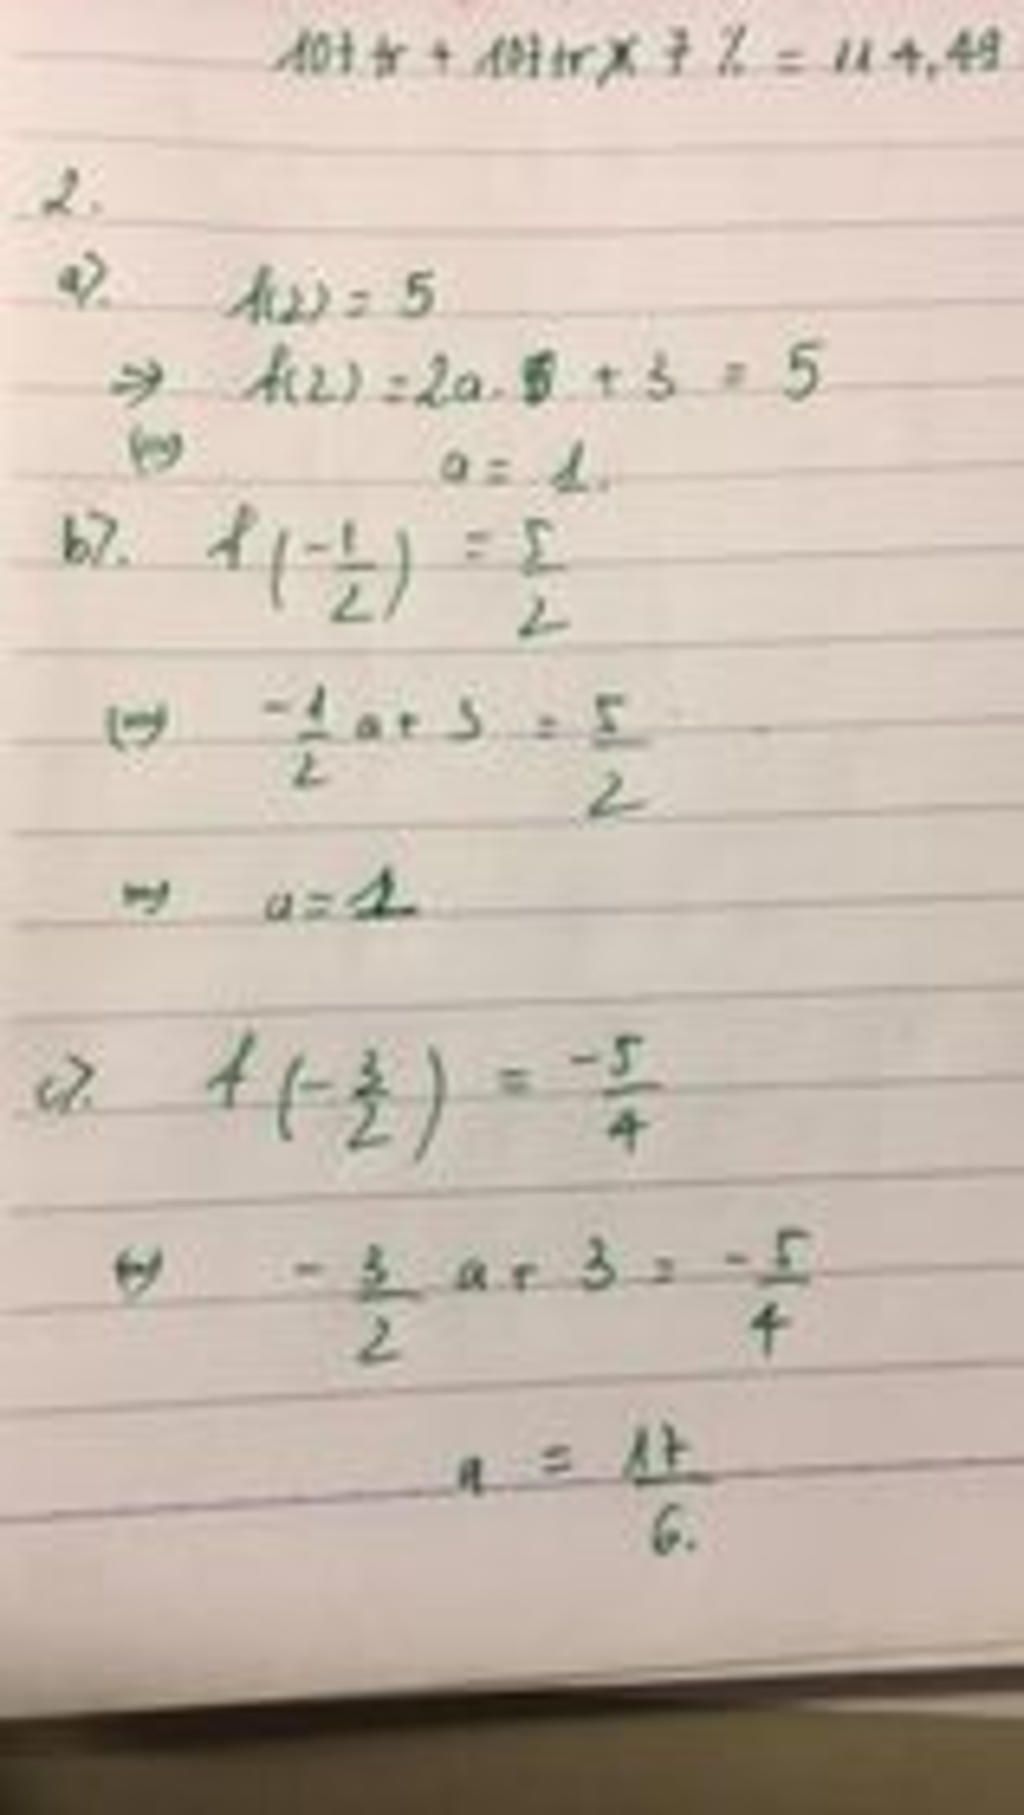 107tr + 107tr x 7 % = 114,49
2.
a). f(2) = 5
=> f(2) = 2a + 3 = 5
<=> a = 1.
b). f(-1/2) = 5/2
<=> -1/2 a + 3 = 5/2
<=> a = 1
c). f(-3/2) = -5/4
<=> -3/2 a + 3 = -5/4
a = 17/6.